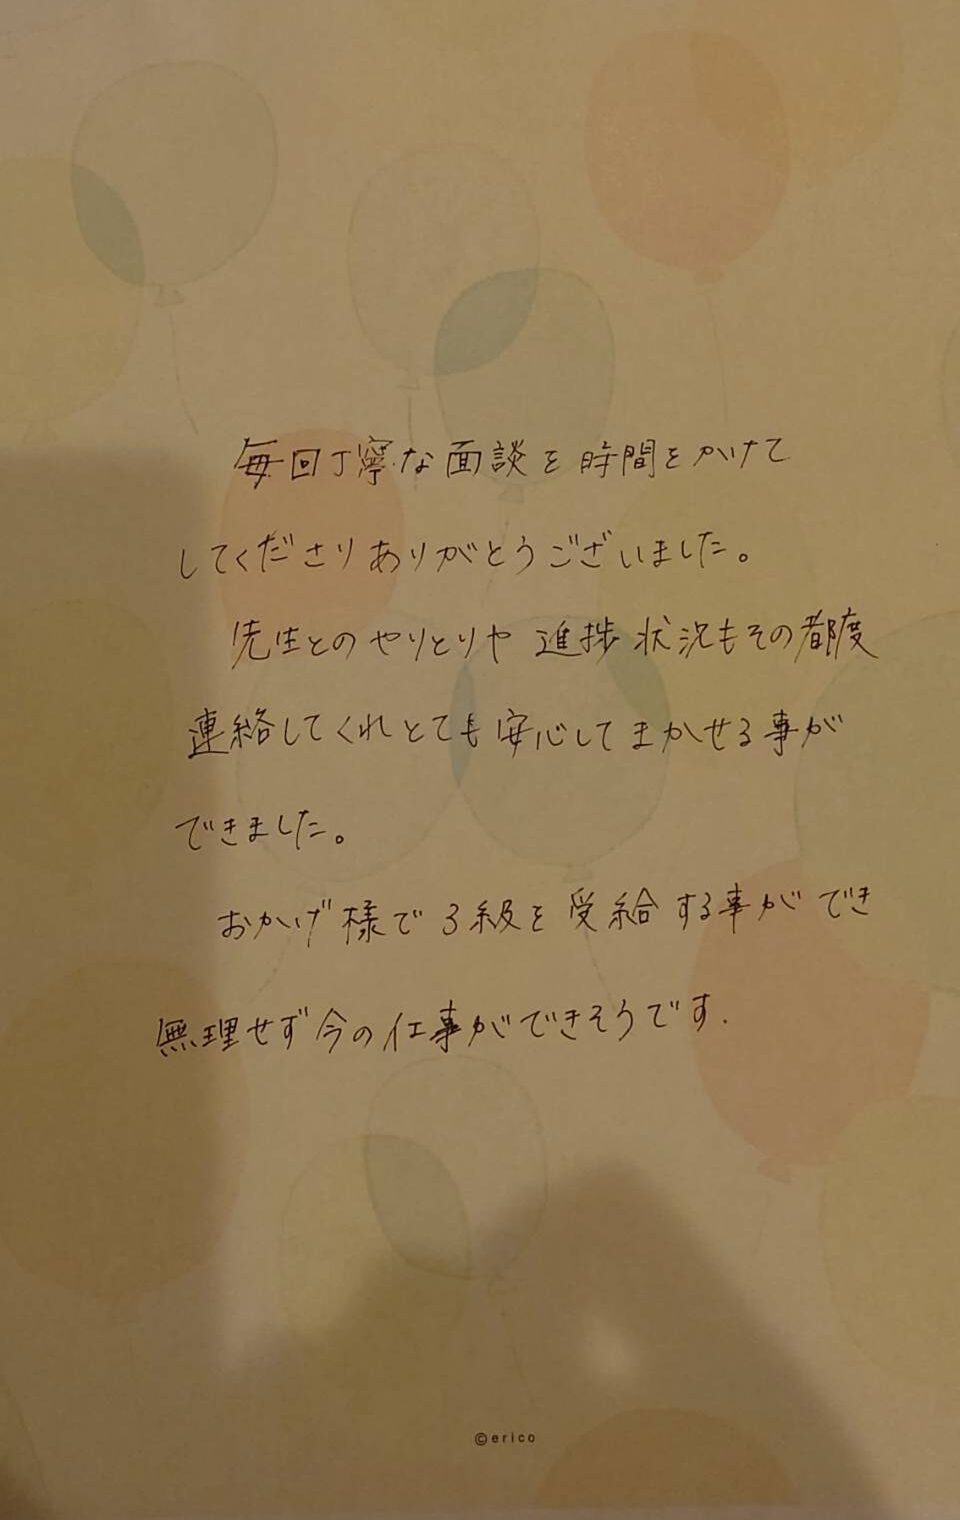 毎回丁寧な面談を時間をかけて
してくださりありがとうございました。
先生とのやりとりや進捗状況もその都度
連絡してくれとても安心してまかせる事が
できました。
おかげ様で3級を受給する事ができ
無理せず今の仕事ができそうです.
©erico